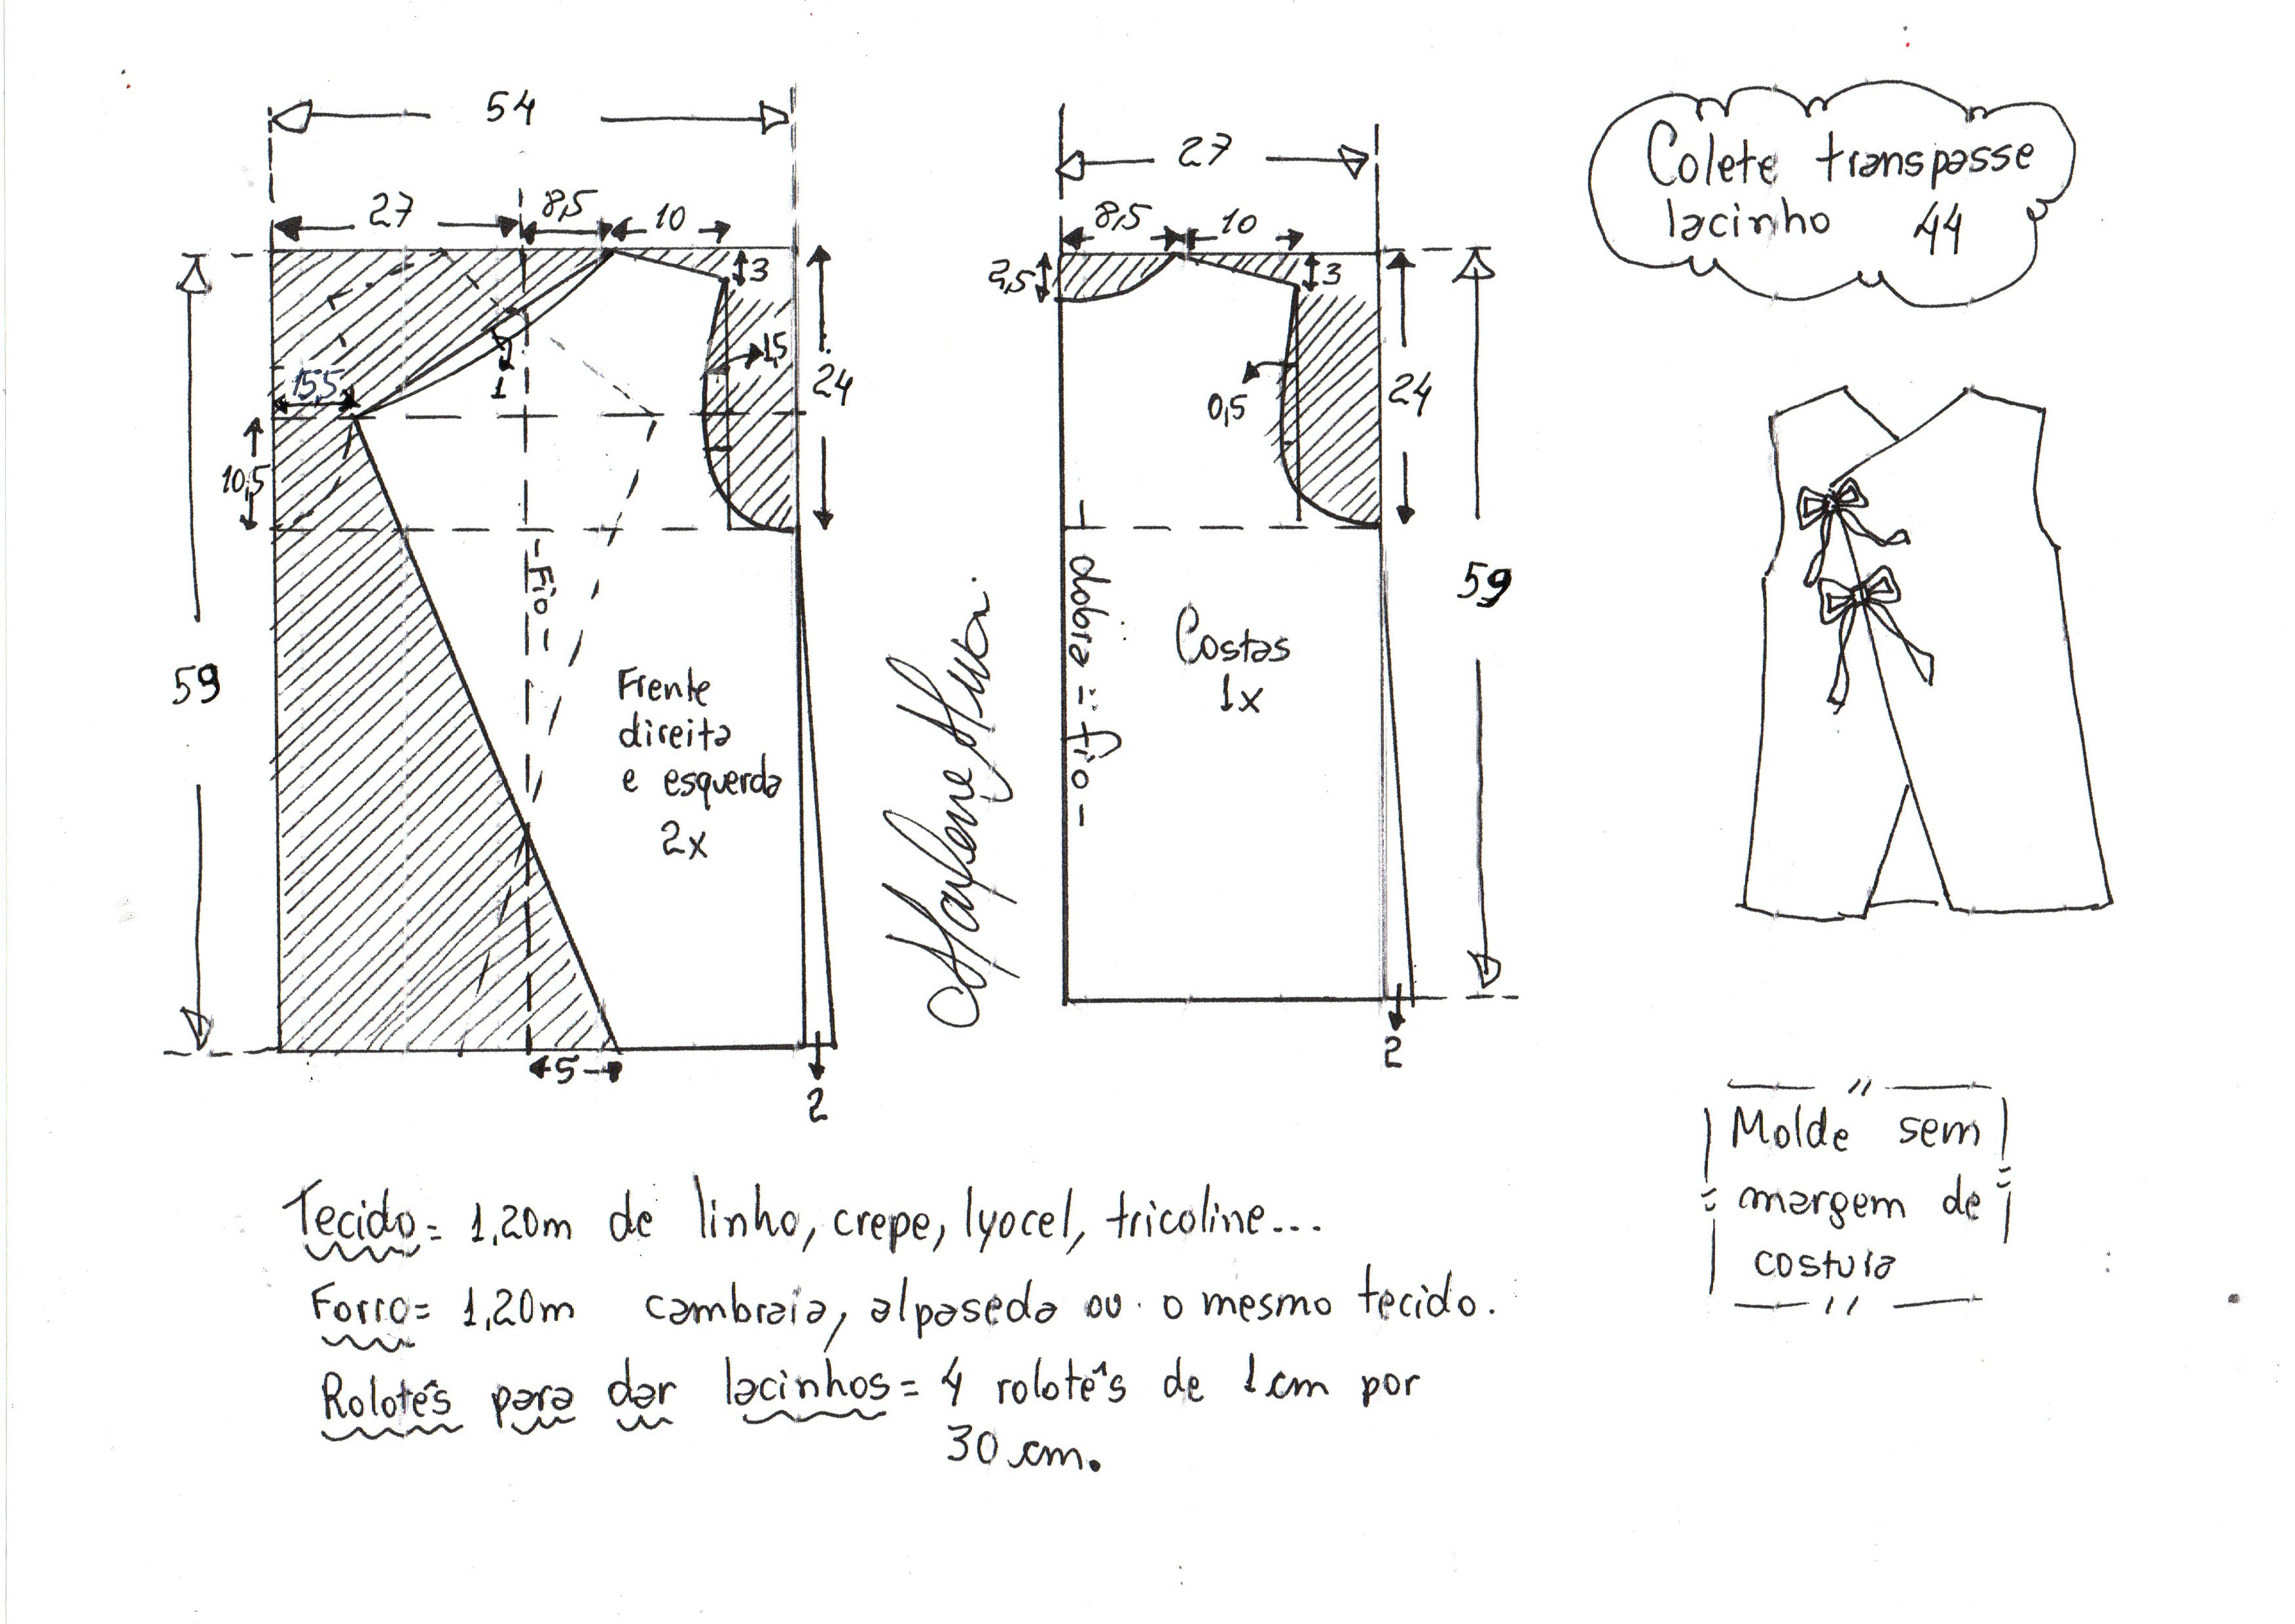 54
27
8,5
10
3
1,5
24
15,5
1
10,5
59
- Fio -
Frente
direita
e esquerda
2x
5
2
27
8,5
10
2,5
3
0,5
24
59
dobra = fio -
Costas
1x
2
Marlene Mukai
Colete transpasse
lacinho 44
Tecido = 1,20m de linho, crepe, lyocel, tricoline...
Forro = 1,20m cambraia, alpaseda ou o mesmo tecido.
Rolotês para dar lacinhos = 4 rolotês de 1 cm por
30 cm.
Molde sem
margem de
costura